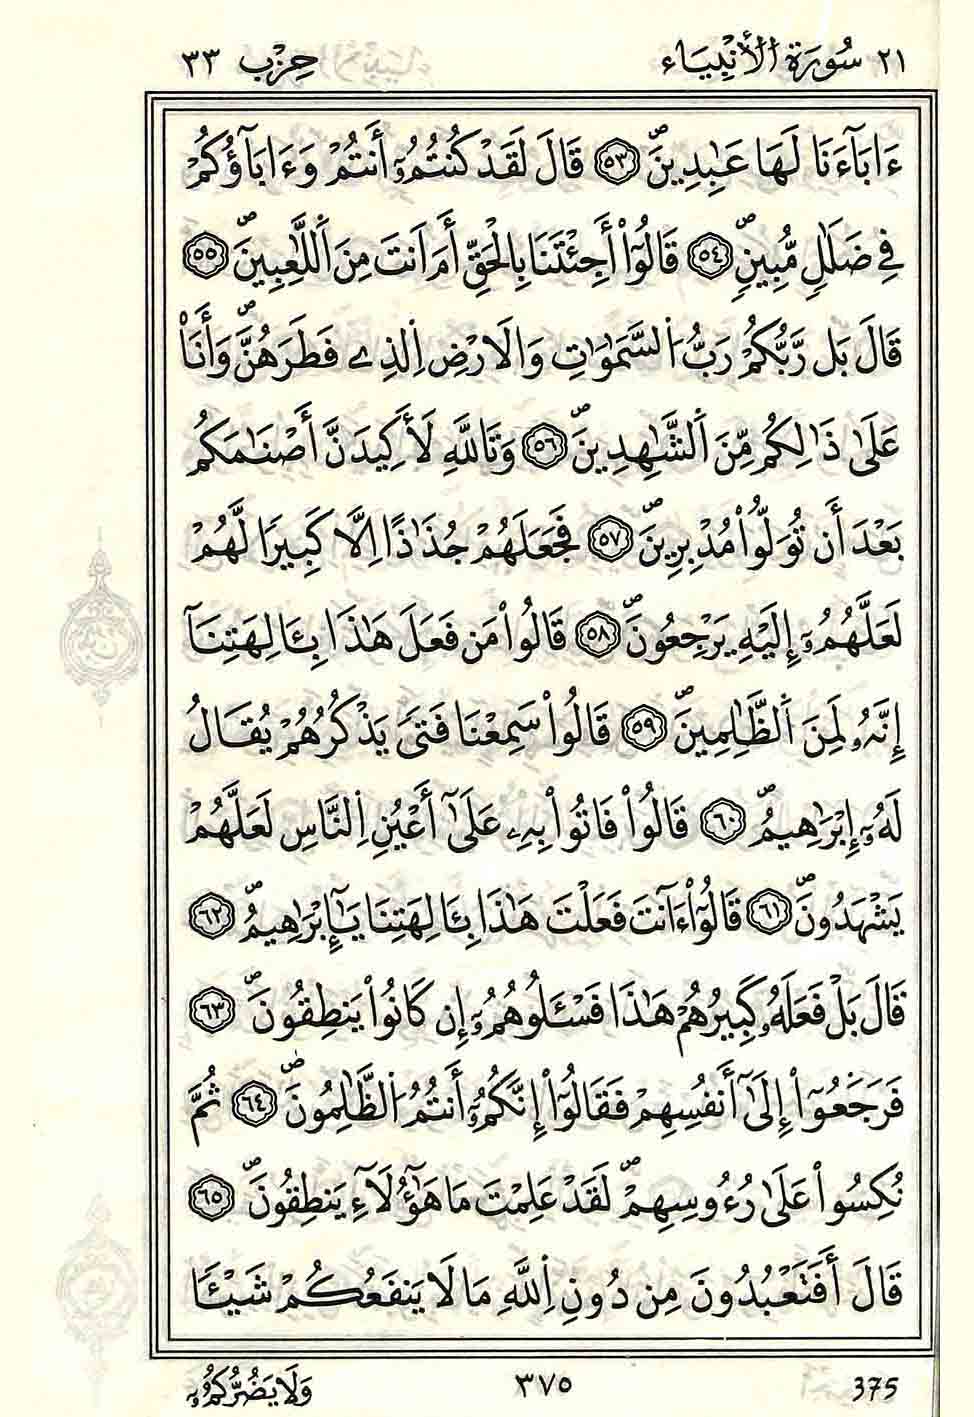 ٢١ سُورَةُ اَ۬لْأَنۢبِيَاءِ حِزْب ٣٣
ءَابَآءَنَا لَهَا عَٰبِدِينَۖ ٥٣ قَالَ لَقَدْ كُنتُمُۥٓ أَنتُمْ وَءَابَآؤُكُمْ
فِے ضَلَٰلٖ مُّبِينٖۖ ٥٤ قَالُوٓاْ أَجِئْتَنَا بِالْحَقِّ أَمَ اَنتَ مِنَ اَ۬للَّٰعِبِينَۖ ٥٥
قَالَ بَل رَّبُّكُمْ رَبُّ اُ۬لسَّمَٰوَٰتِ وَالَارْضِ اِ۬لذِے فَطَرَهُنَّۖ وَأَنَا۠
عَلَىٰ ذَٰلِكُم مِّنَ اَ۬لشَّٰهِدِينَۖ ٥٦ وَتَاللَّهِ لَأَكِيدَنَّ أَصْنَٰمَكُم
بَعْدَ أَن تُوَلُّواْ مُدْبِرِينَۖ ٥٧ فَجَعَلَهُمْ جُذَٰذاً اِلَّا كَبِيراٗ لَّهُمْ
لَعَلَّهُمُۥٓ إِلَيْهِ يَرْجِعُونَۖ ٥٨ قَالُواْ مَن فَعَلَ هَٰذَا بِـَٔالِهَتِنَآ
إِنَّهُۥ لَمِنَ اَ۬لظَّٰلِمِينَۖ ٥٩ قَالُواْ سَمِعْنَا فَتىٗ يَذْكُرُهُمْ يُقَالُ
لَهُۥٓ إِبْرَٰهِيمُۖ ٦٠ قَالُواْ فَاتُواْ بِهِۦ عَلَىٰٓ أَعْيُنِ اِ۬لنَّاسِ لَعَلَّهُمْ
يَشْهَدُونَۖ ٦١ قَالُوٓاْ ءَآنتَ فَعَلْتَ هَٰذَا بِـَٔالِهَتِنَا يَٰٓإِبْرَٰهِيمُۖ ٦٢
قَالَ بَلْ فَعَلَهُۥ كَبِيرُهُمْ هَٰذَا فَسْـَٔلُوهُمُۥٓ إِن كَانُواْ يَنطِقُونَۖ ٦٣
فَرَجَعُوٓاْ إِلَىٰٓ أَنفُسِهِمْ فَقَالُوٓاْ إِنَّكُمُۥٓ أَنتُمُ اُ۬لظَّٰلِمُونَۖ ٦٤ ثُمَّ
نُكِسُواْ عَلَىٰ رُءُوسِهِمْۖ لَقَدْ عَلِمْتَ مَا هَٰٓؤُلَآءِ يَنطِقُونَۖ ٦٥
قَالَ أَفَتَعْبُدُونَ مِن دُونِ اِ۬للَّهِ مَا لَا يَنفَعُكُمْ شَيْـٔاٗ
وَلَا يَضُرُّكُمُۥٓ ٣٧٥ 375